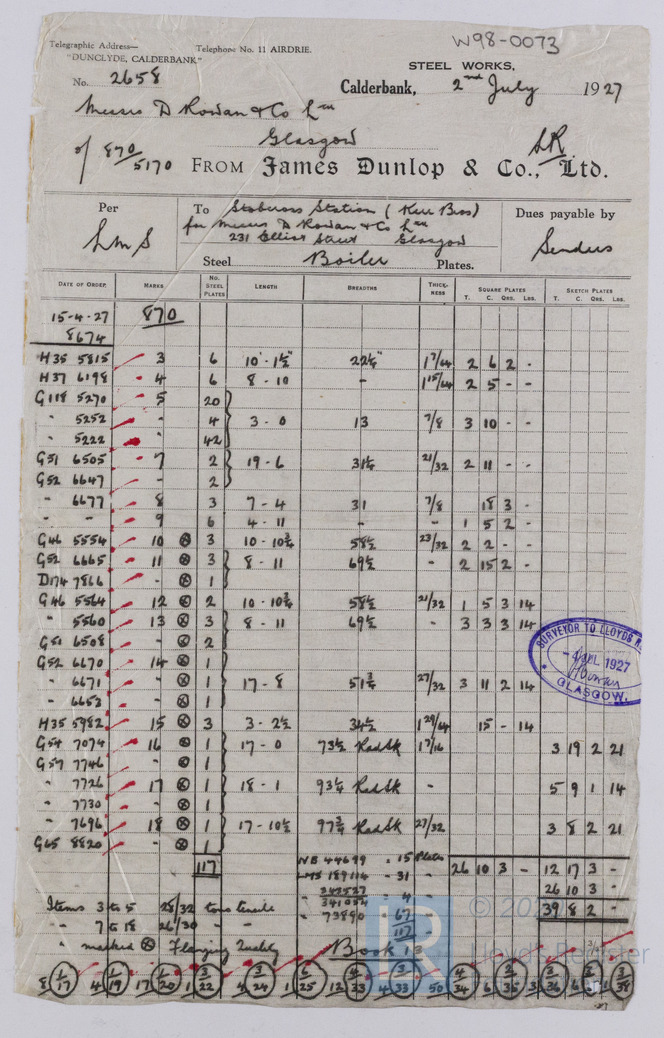 W98-0073
Telegraphic Address— Telephone No. 11 AIRDRIE.
"DUNCLYDE, CALDERBANK"
STEEL WORKS,
No. 2658 Calderbank, 2nd July 1927
Messrs D Rowan & Co Ltd
Glasgow
of 870/5170
FROM James Dunlop & Co., Ltd.
Per LMS
To Stobcross Station (Kerr Bros)
for Messrs D Rowan & Co Ltd
231 Elliot Street Glasgow
Dues payable by Senders
Steel Boiler Plates.
DATE OF ORDER. MARKS NO. STEEL PLATES LENGTH BREADTHS THICKNESS SQUARE PLATES T. C. QRS. LBS. SKETCH PLATES T. C. QRS. LBS.
15-4-27 870
8674
H35 5815 3 6 10'-1½" 22¼" 1 7/64 2 6 2 -
H37 6198 4 6 8-10 - 1 15/64 2 5 - -
G118 5270 5 20
" 5252 - 4 3-0 13 7/8 3 10 - -
" 5222 " 42
G51 6505 7 2 19-6 31¼ 21/32 2 11 - -
G52 6647 - 2
" 6677 8 3 7-4 31 7/8 18 3 -
" - 9 6 4-11 - - 1 5 2 -
G46 5554 10 ⊗ 3 10-10¾ 58½ 23/32 2 2 - -
G52 6665 11 ⊗ 3 8-11 69½ - 2 15 2 -
D174 7866 - ⊗ 1
G46 5564 12 ⊗ 2 10-10¾ 58½ 21/32 1 5 3 14
" 5560 13 ⊗ 3 8-11 69½ - 3 3 3 14
G51 6508 - ⊗ 2
G52 6670 14 ⊗ 1
" 6671 - ⊗ 1 17-8 51¾ 27/32 3 11 2 14
" 6653 - ⊗ 1
H35 5982 15 ⊗ 3 3-2½ 34½ 1 29/64 15 - 14
G54 7074 16 ⊗ 1 17-0 73½ Rad Sk 1 7/16 3 19 2 21
G57 7746 - ⊗ 1
" 7726 17 ⊗ 1 18-1 93¼ Rad Sk - 5 9 1 14
" 7730 - ⊗ 1
" 7696 18 ⊗ 1 17-10½ 97¾ Rad Sk 27/32 3 8 2 21
G65 8820 - ⊗ 1
117 NB 44699 = 15 Plates 26 10 3 - 12 17 3 -
LMS 189114 - 31 - 26 10 3 -
341052 - 4 - 39 8 2 -
" 73890 - 67 -
117 -
Items 3 to 5 28/32 tons tensile
" 7 to 18 26/30 - -
" marked ⊗ Flanging Quality Book 13
SURVEYOR TO LLOYDS
-4 JUL 1927
GLASGOW.
© 20
LR
Lloyd's Register